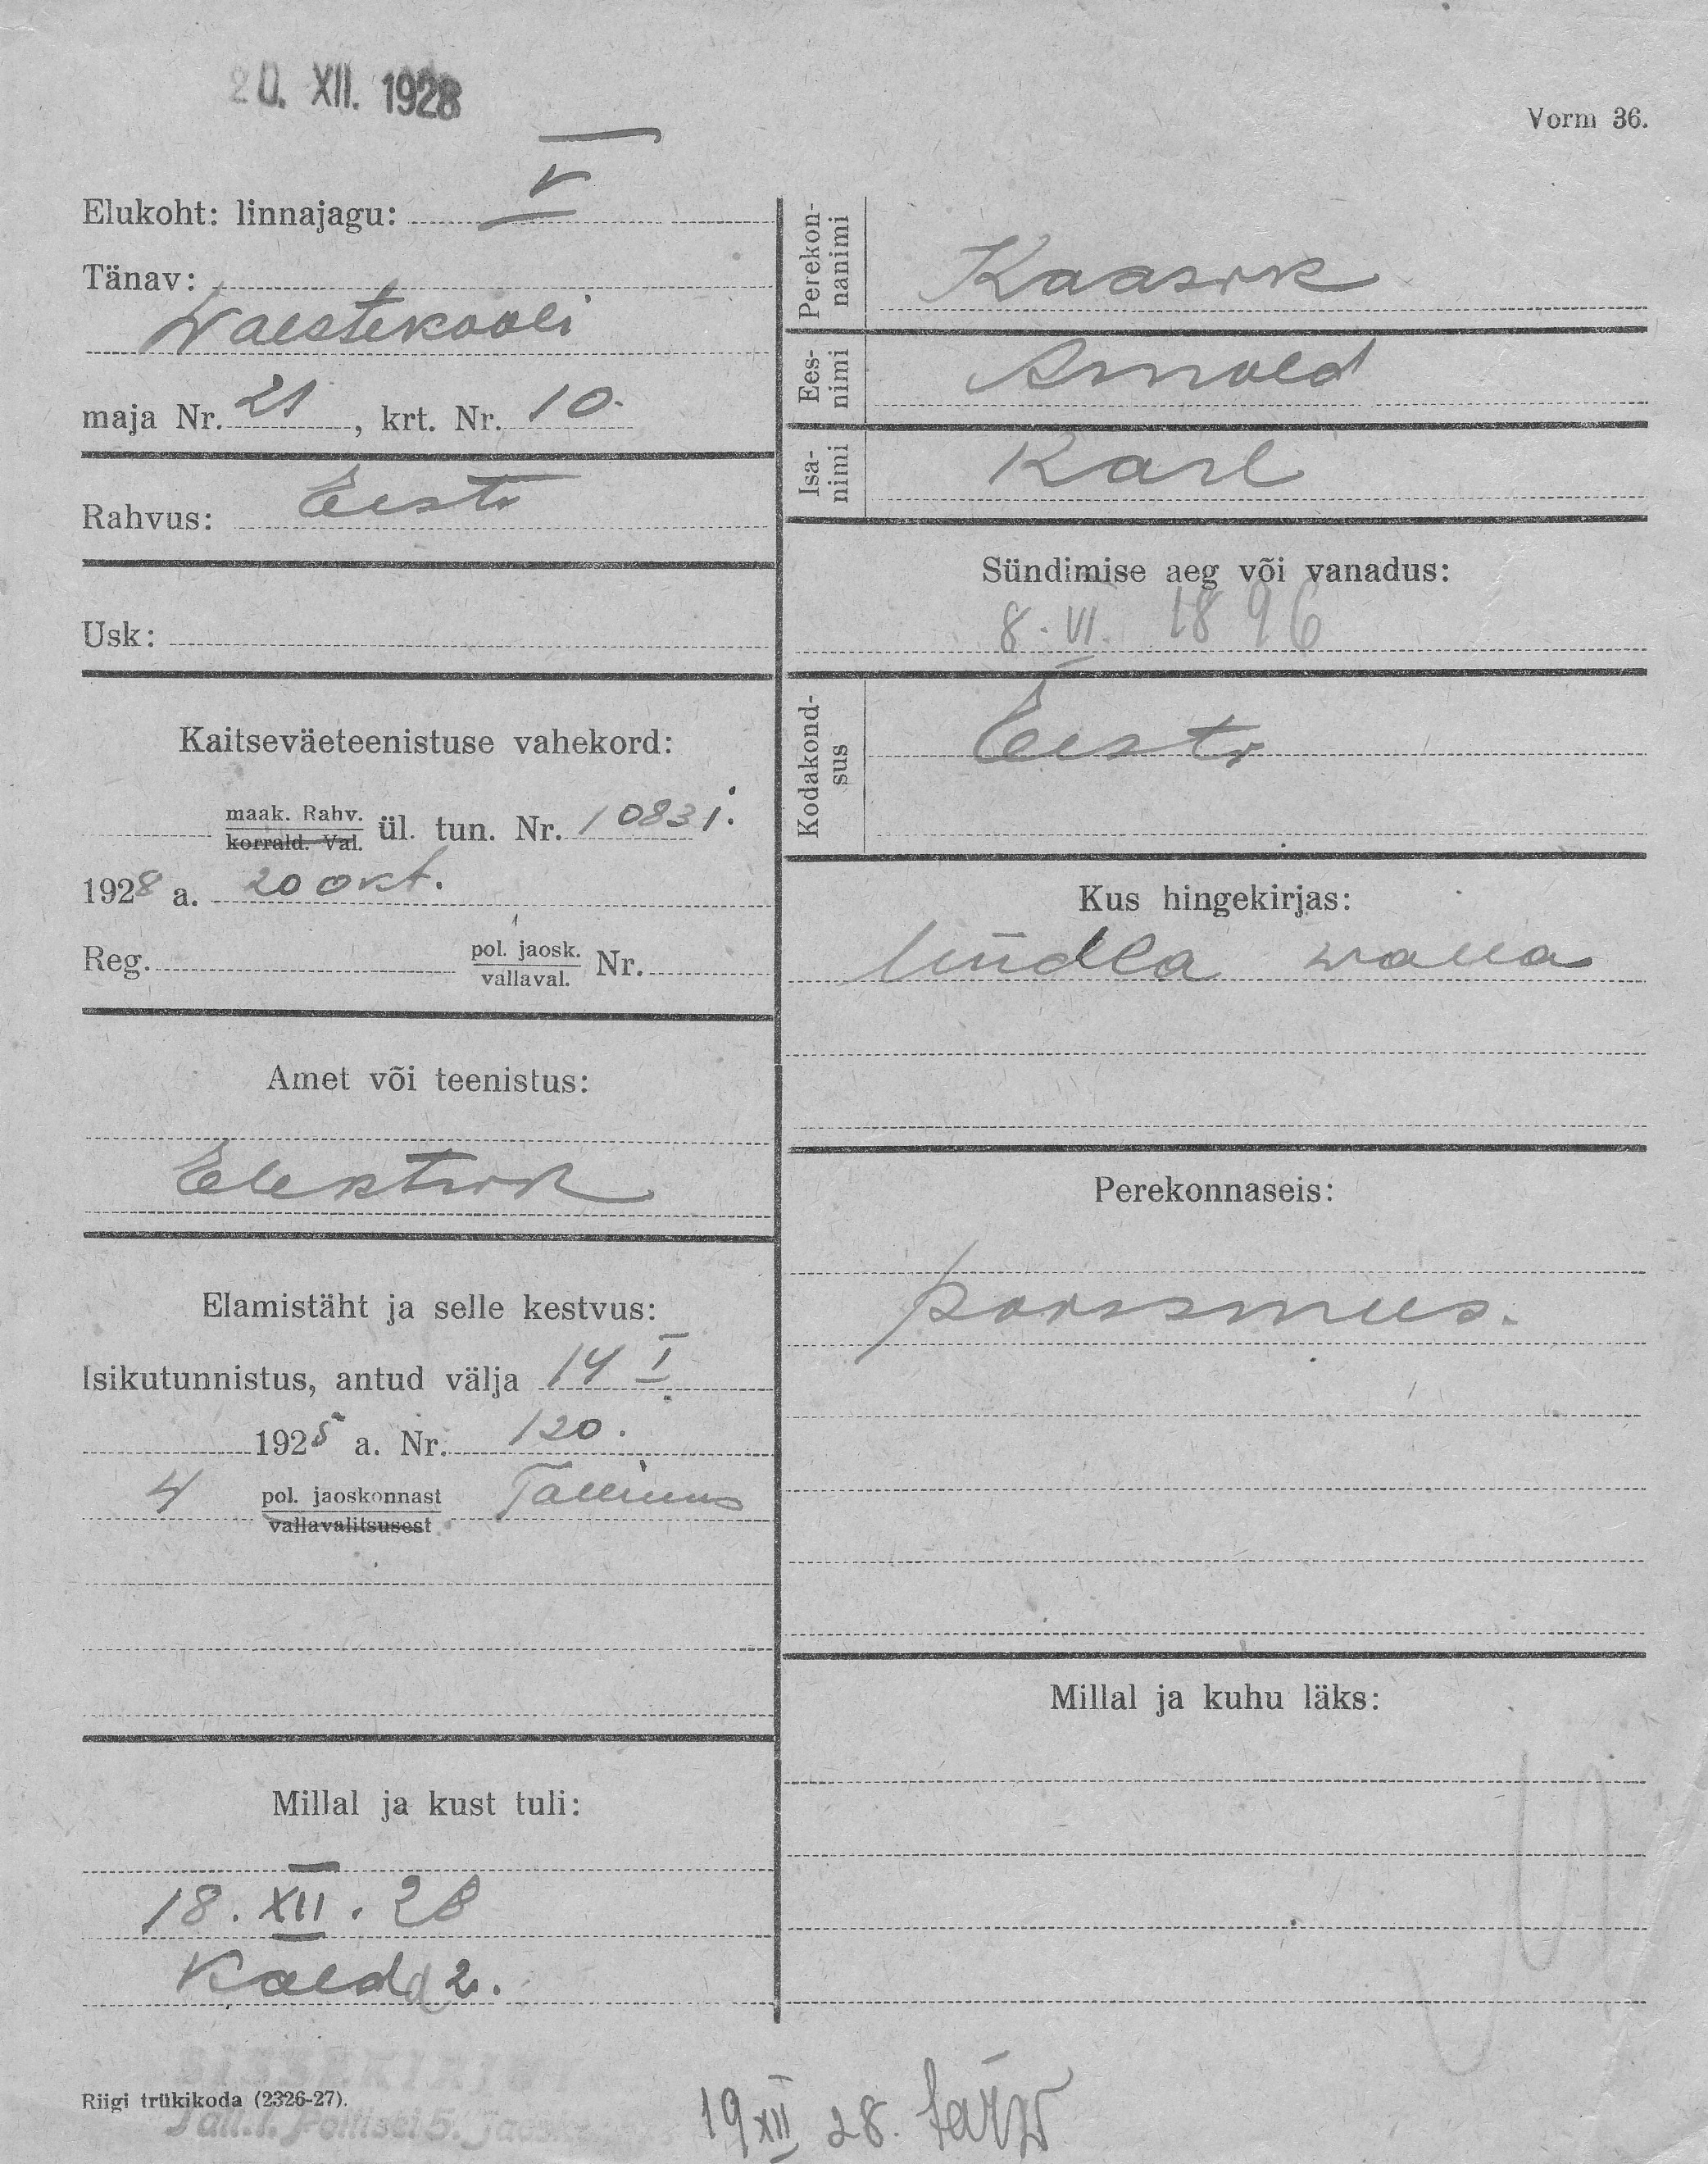 20. XII. 1928
Vorm 36.
Elukoht: linnajagu: V
Tänav:
Waestekooli
maja Nr. 21, krt. Nr. 10.
Rahvus: Eesti
Usk:
Kaitseväeteenistuse vahekord:
maak. Rahv.
korrald. Val.
ül. tun. Nr. 10831.
1928 a. 20 okt.
Reg. pol. jaosk. Nr.
vallaval.
Amet või teenistus:
Elektrik
Elamistäht ja selle kestvus:
Isikutunnistus, antud välja 14 I
1925 a. Nr. 120.
4 pol. jaoskonnast Tallinnas
vallavalitsusest
Millal ja kust tuli:
18. XII. 28
Kalda 2.
Perekon-
nanimi
Kaasik
Ees-
nimi
Arnold
Isa-
nimi
Karl
Sündimise aeg või vanadus:
8. VI. 1896
Kodakond-
sus
Eesti
Kus hingekirjas:
walla
Perekonnaseis:
poissmees.
Millal ja kuhu läks:
Riigi trükikoda (2326-27).
SISSEKIRJUT
Tall.-I. Politsei 5. jaosk
19 XII 28.